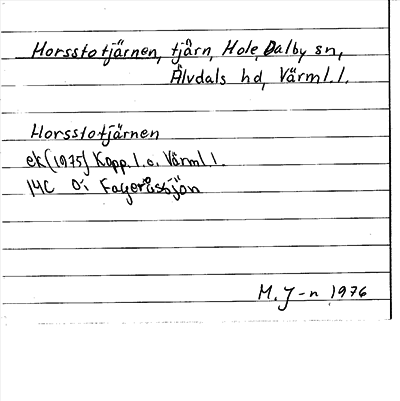 Horsstotjärnen, tjärn, Hole, Dalby sn,
Älvdals hd, Värml.l.
Horsstotjärnen
ek (1975) Kopp.l. o. Värml.l.
14C Öi Fageråssjön
M. J-n 1976